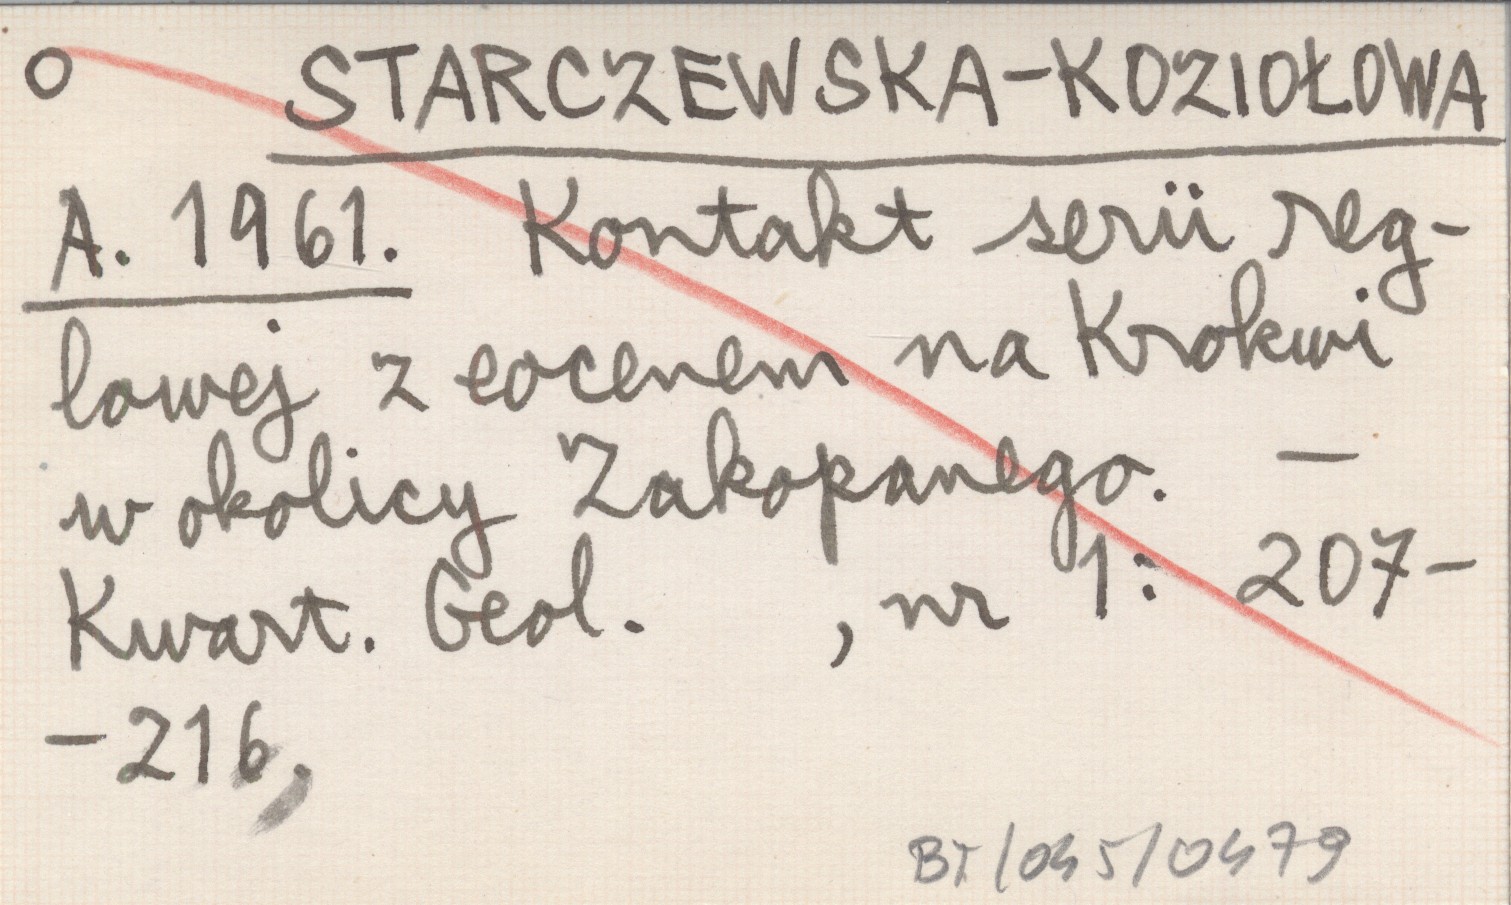 O STARCZEWSKA-KOZIOŁOWA
A. 1961. Kontakt serii reg-
lowej z eocenem na Krokwi
w okolicy Zakopanego. —
Kwart. Geol. , nr 1: 207-
-216,
BT/045/0479